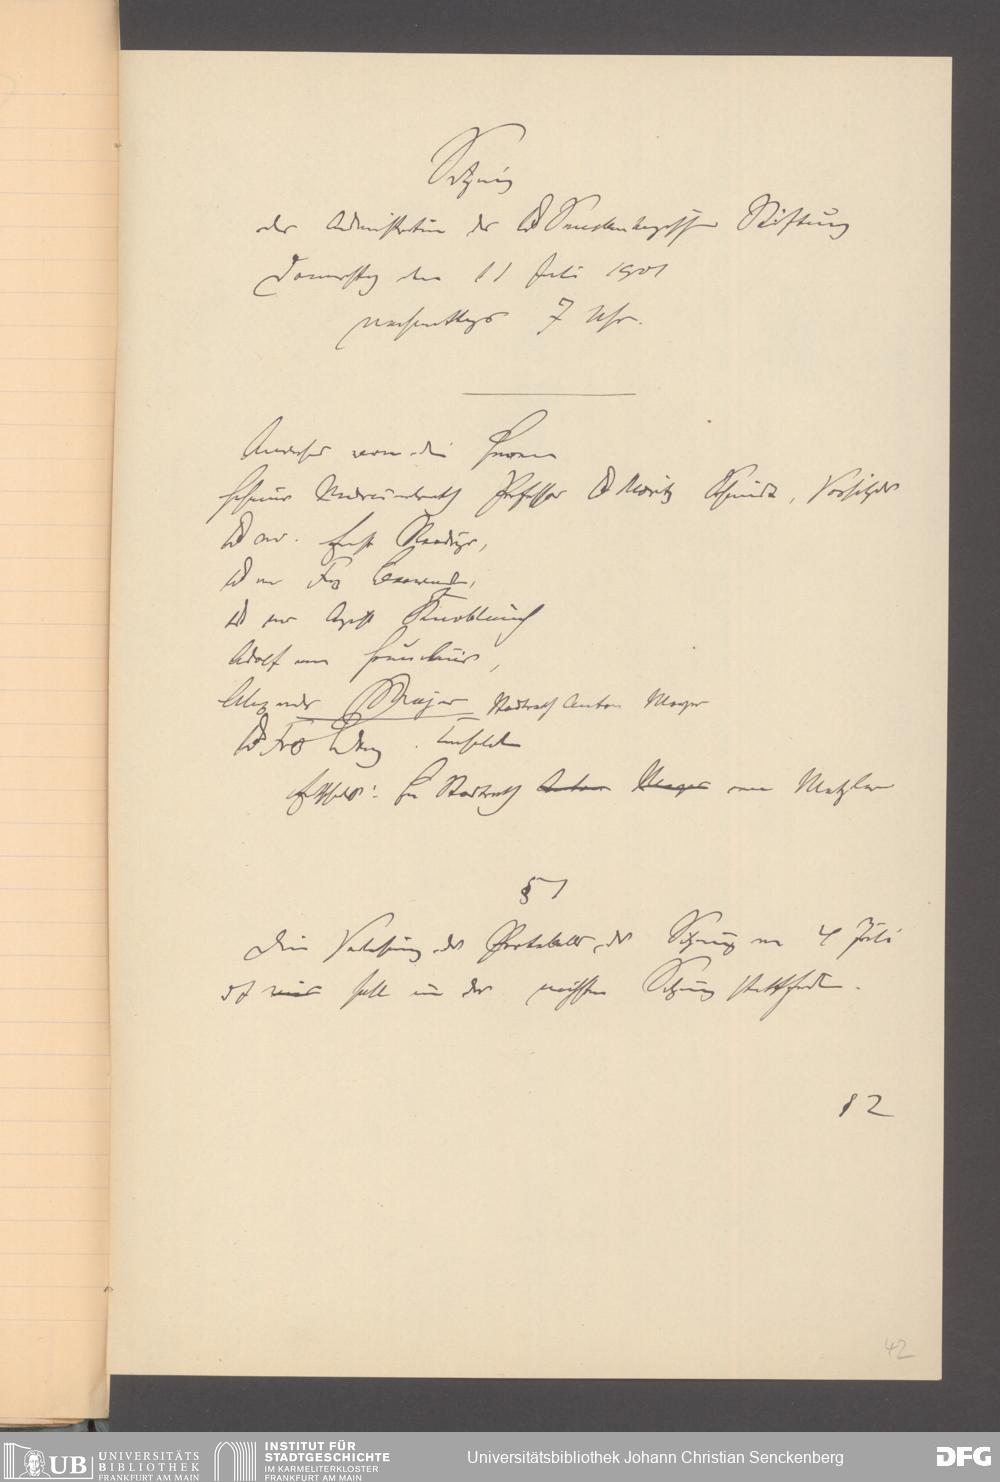 Sitzung
der Administration der Dr Senckenbergischen Stiftung
Donnerstag den 11 Juli 1901
nachmittags 7 Uhr.
Anwesend waren die Herren
Geheimer Medicinalrath Professor Dr Moritz Schmidt, Vorsitzender
Dr med. Ernst Roediger,
Dr med
Dr med August Knoblauch
Adolf von Grunelius,
Alexander Majer Stadtrath Anton Meyer
Dr
Entschuldigt: Herr Stadtrath Anton Meyer von Metzler
§ 1
Die Verlesung des Protokolls der Sitzung vom 4 Juli
soll in der nächsten Sitzung stattfinden.
§ 2
42
UB UNIVERSITÄTS
BIBLIOTHEK
FRANKFURT AM MAIN
INSTITUT FÜR
STADTGESCHICHTE
IM KARMELITERKLOSTER
FRANKFURT AM MAIN
Universitätsbibliothek Johann Christian Senckenberg
DFG